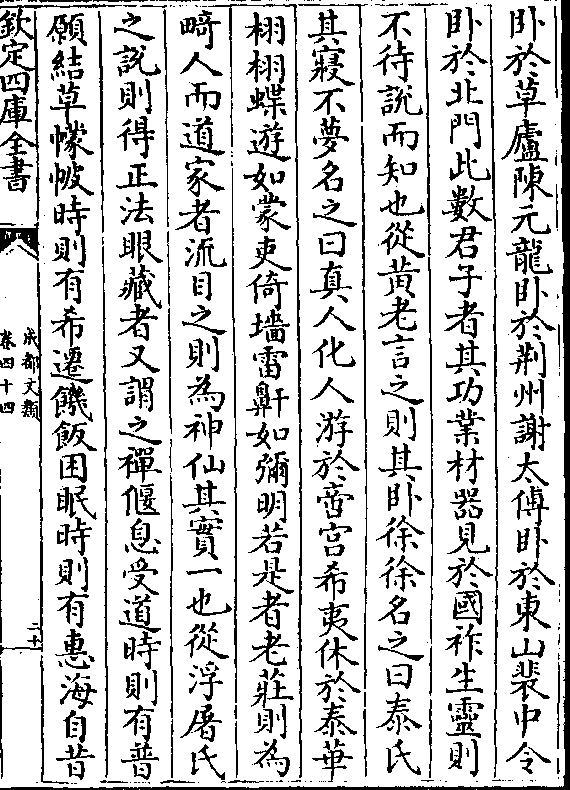 卧於草廬陳元龍卧於荆州謝太傅卧於東山裴中令
卧於北門此數君子者其功業材器見於國祚生靈則
不待說而知也從黄老言之則其卧徐徐名之曰泰氏
其寢不夢名之曰真人化人游於帝宫希夷休於泰華
栩栩蝶遊如蒙吏倚墻雷鼾如彌明若是者老莊則為
畸人而道家者流目之則為神仙其實一也從浮屠氏
之說則得正法眼藏者又謂之禪偃息受道時則有普
願結草幪帔時則有希遷饑飯困眠時則有惠海自昔
欽定四庫全書
成都文類
卷四十四
二十